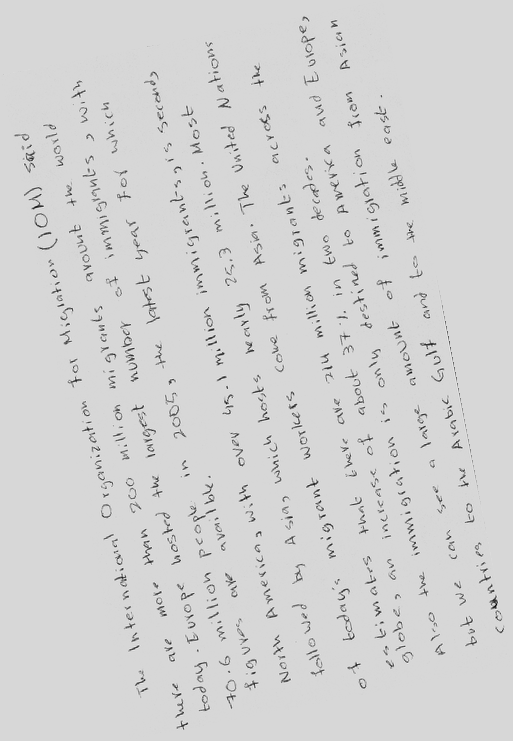 The International Organization for Migration (IOM) said
there are more than 200 million migrants arount the world
today. Europe hosted the largest number of immigrants, with
70.6 million people in 2005, the latest year for which
figures are available.
North America, with over 45.1 million immigrants, is seconds
followed by Asia, which hosts nearly 25.3 million. Most
of today's migrant workers come from Asia. The United Nations
estimates that there are 214 million migrants across the
globe, an increase of about 37% in two decades.
Also the immigration is only destined to America and Europe,
but we can see a large amount of immigration from Asian
countries to the Arabic Gulf and to the middle east.